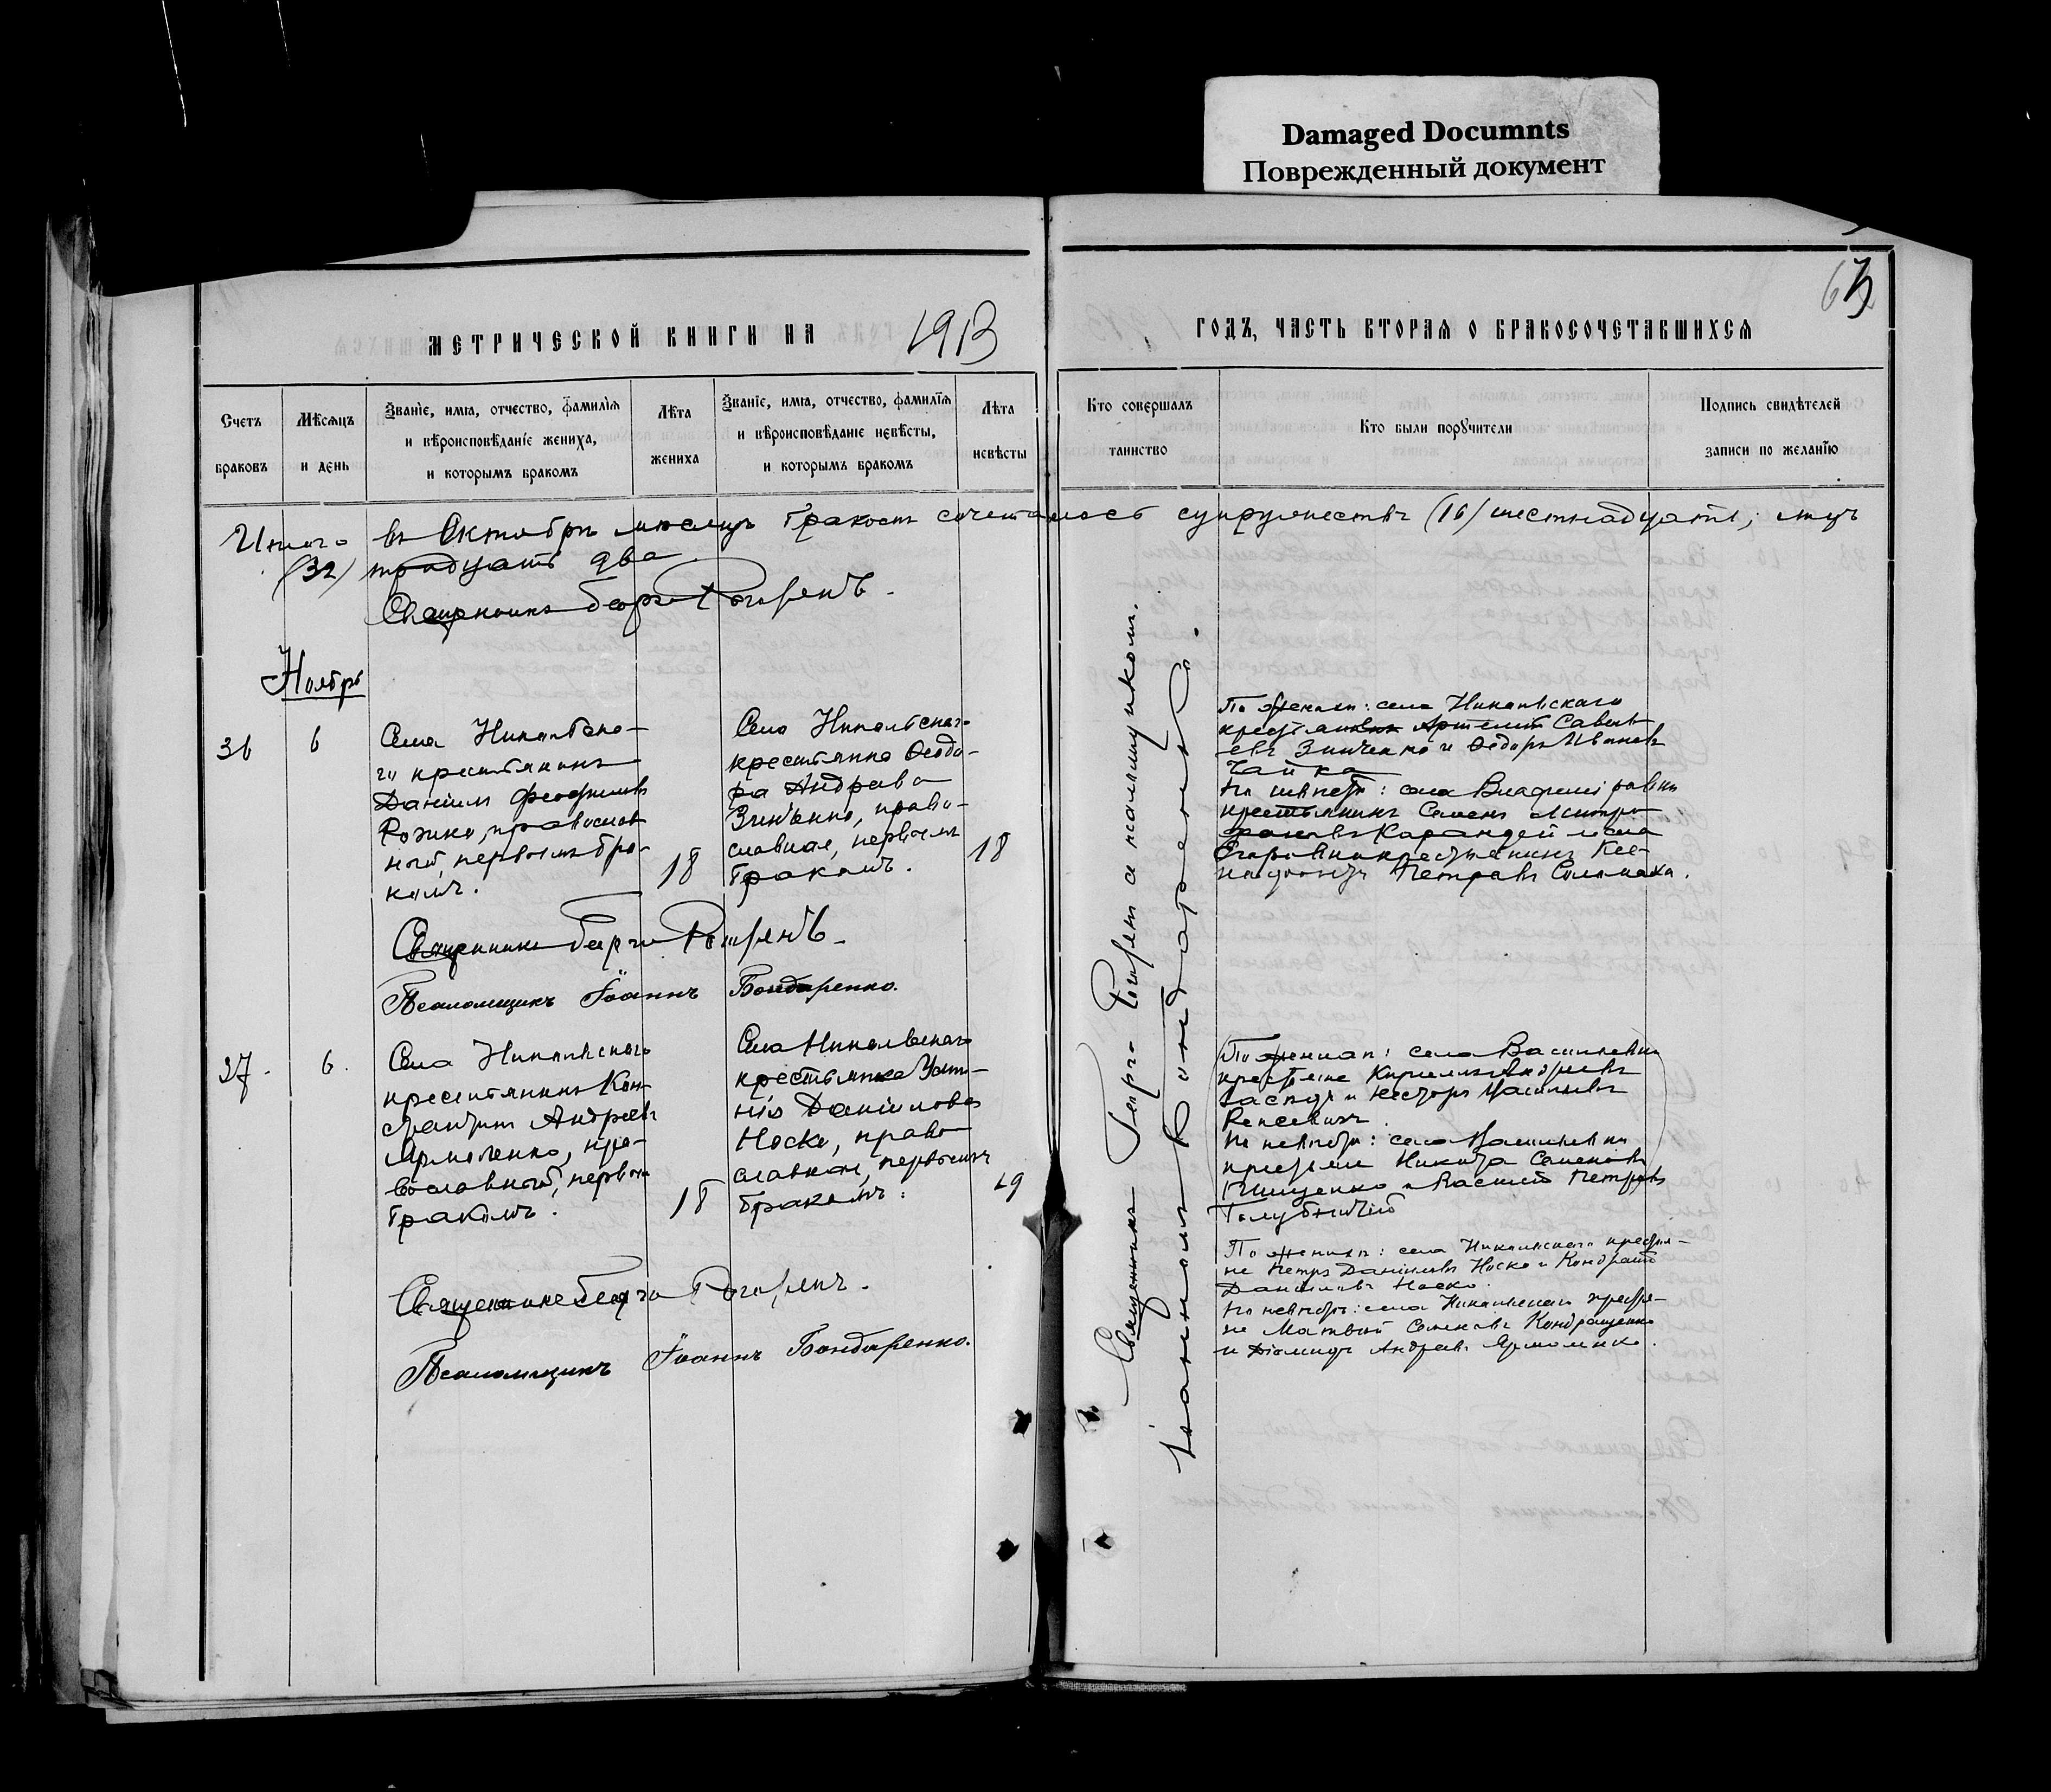 Damaged Documnts
Поврежденный документ
63
МЕТРИЧЕСКОЙ КНИГИ НА 1913
ГОДЪ, ЧАСТЬ ВТОРАЯ О БРАКОСОЧЕТАВШИХСЯ
Счетъ
браковъ
Мѣсяцъ
и день
Званіе, имя, отчество, фамилія
и вѣроисповѣданіе жениха,
и которымъ бракомъ
Лѣта
жениха
Званіе, имя, отчество, фамилія
и вѣроисповѣданіе невѣсты,
и которымъ бракомъ
Лѣта
невѣсты
Кто совершалъ
таинство
Кто были поручители
Подпись свидѣтелей
записи по желанію
Итого въ Октябрѣ мѣсяцѣ бракомъ сочеталось супружествъ (16) шестнадцать, лицъ
(32) тридцать два
Священникъ
Ноябрь
36
6
Села Никольско-
го крестьянинъ
Даніилъ Феофиловъ
Рожко, православ
ный, первымъ бра-
комъ.
18
Села Никольскаго
крестьянка Ѳеодо-
ра Андреева
Зинченко, право-
славная, первымъ
бракомъ.
18
По женихѣ: села Никольскаго
крестьяне Артемій Савель
евъ Зинченко и Ѳедоръ Ивановъ
Чайка
По невѣстѣ: села
крестьянинъ Семенъ Митро-
фановъ Карандей и села
крестьянинъ
Петровъ Соломаха.
Священникъ
Псаломщикъ Іоаннъ Бондаренко.
37.
6.
Села Никольскаго
крестьянинъ Кон-
стантинъ Андреевъ
Ярмоленко, пра-
вославный, первымъ
бракомъ.
18
Села Никольскаго
крестьянка Усти-
нія Даніилова
Носко, право-
славная, первымъ
бракомъ.
19
По женихѣ: села Васильевки
крестьяне Кириллъ Андреевъ
и Несторъ Васильевъ
По невѣстѣ: села Васильевки
крестьяне Никита Семеновъ
и Василій Петровъ
Голубничій
По женихѣ: села Никольскаго крестья-
не Петръ Даніиловъ Носко и Кондратъ
Даніиловъ Носко.
По невѣстѣ: села Никольскаго крестья-
не Матвѣй Семеновъ Кондращенко
и Діомидъ Андреевъ Ярмоленко.
Священникъ
Псаломщикъ Іоаннъ Бондаренко.
Священникъ с псаломщикомъ
Іоанномъ Бондаренко.